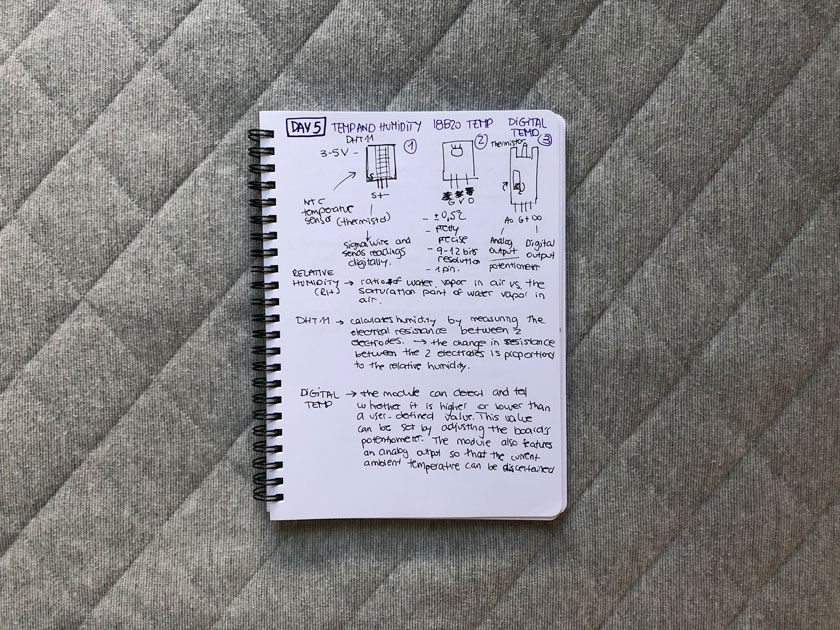 DAY 5 TEMP AND HUMIDITY 18B20 TEMP DIGITAL
TEMP
DHT11 1 2 3
3-5V -
Thermistor
S + -
G V O
NTC
temperature
sensor (thermistd)
Signal wire and
sends readings
digitally.
- ± 0,5%
- pretty
precise
- 9-12 bits
resolution
- 1 pin.
A0 G + D0
Analog
output
potentiometer
Digital
output
RELATIVE
HUMIDITY
(RH) → ratio of water vapor in air vs. the
saturation point of water vapor in
air.
DHT11 → calculates humidity by measuring the
electrical resistance between 2
electrodes. → the change in resistance
between the 2 electrodes is proportional
to the relative humidity.
DIGITAL
TEMP → the module can detect and tell
whether it is higher or lower than
a user-defined value. This value
can be set by adjusting the board's
potentiometer. The module also features
an analog output so that the current
ambient temperature can be discertained